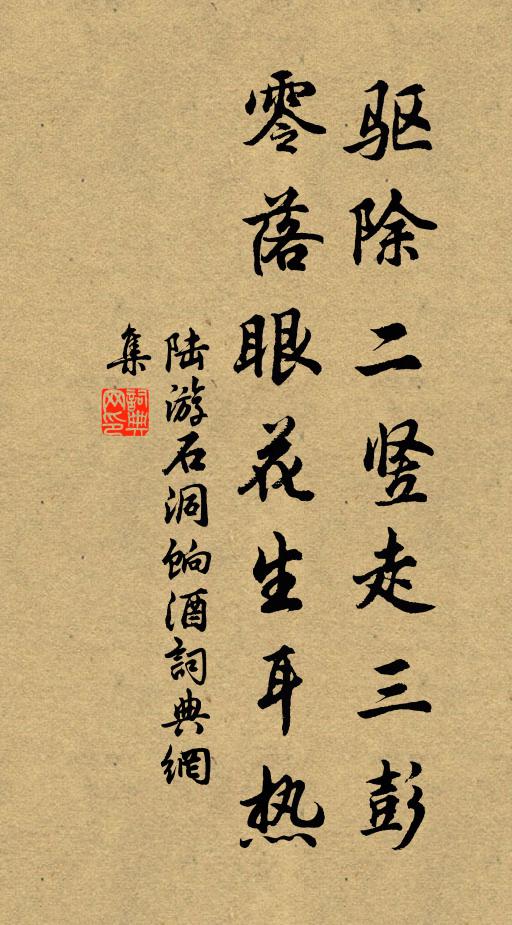 驱除二竖走三彭
零落眼花生耳热
陆游石洞饷酒詞典網
集
詞典網印